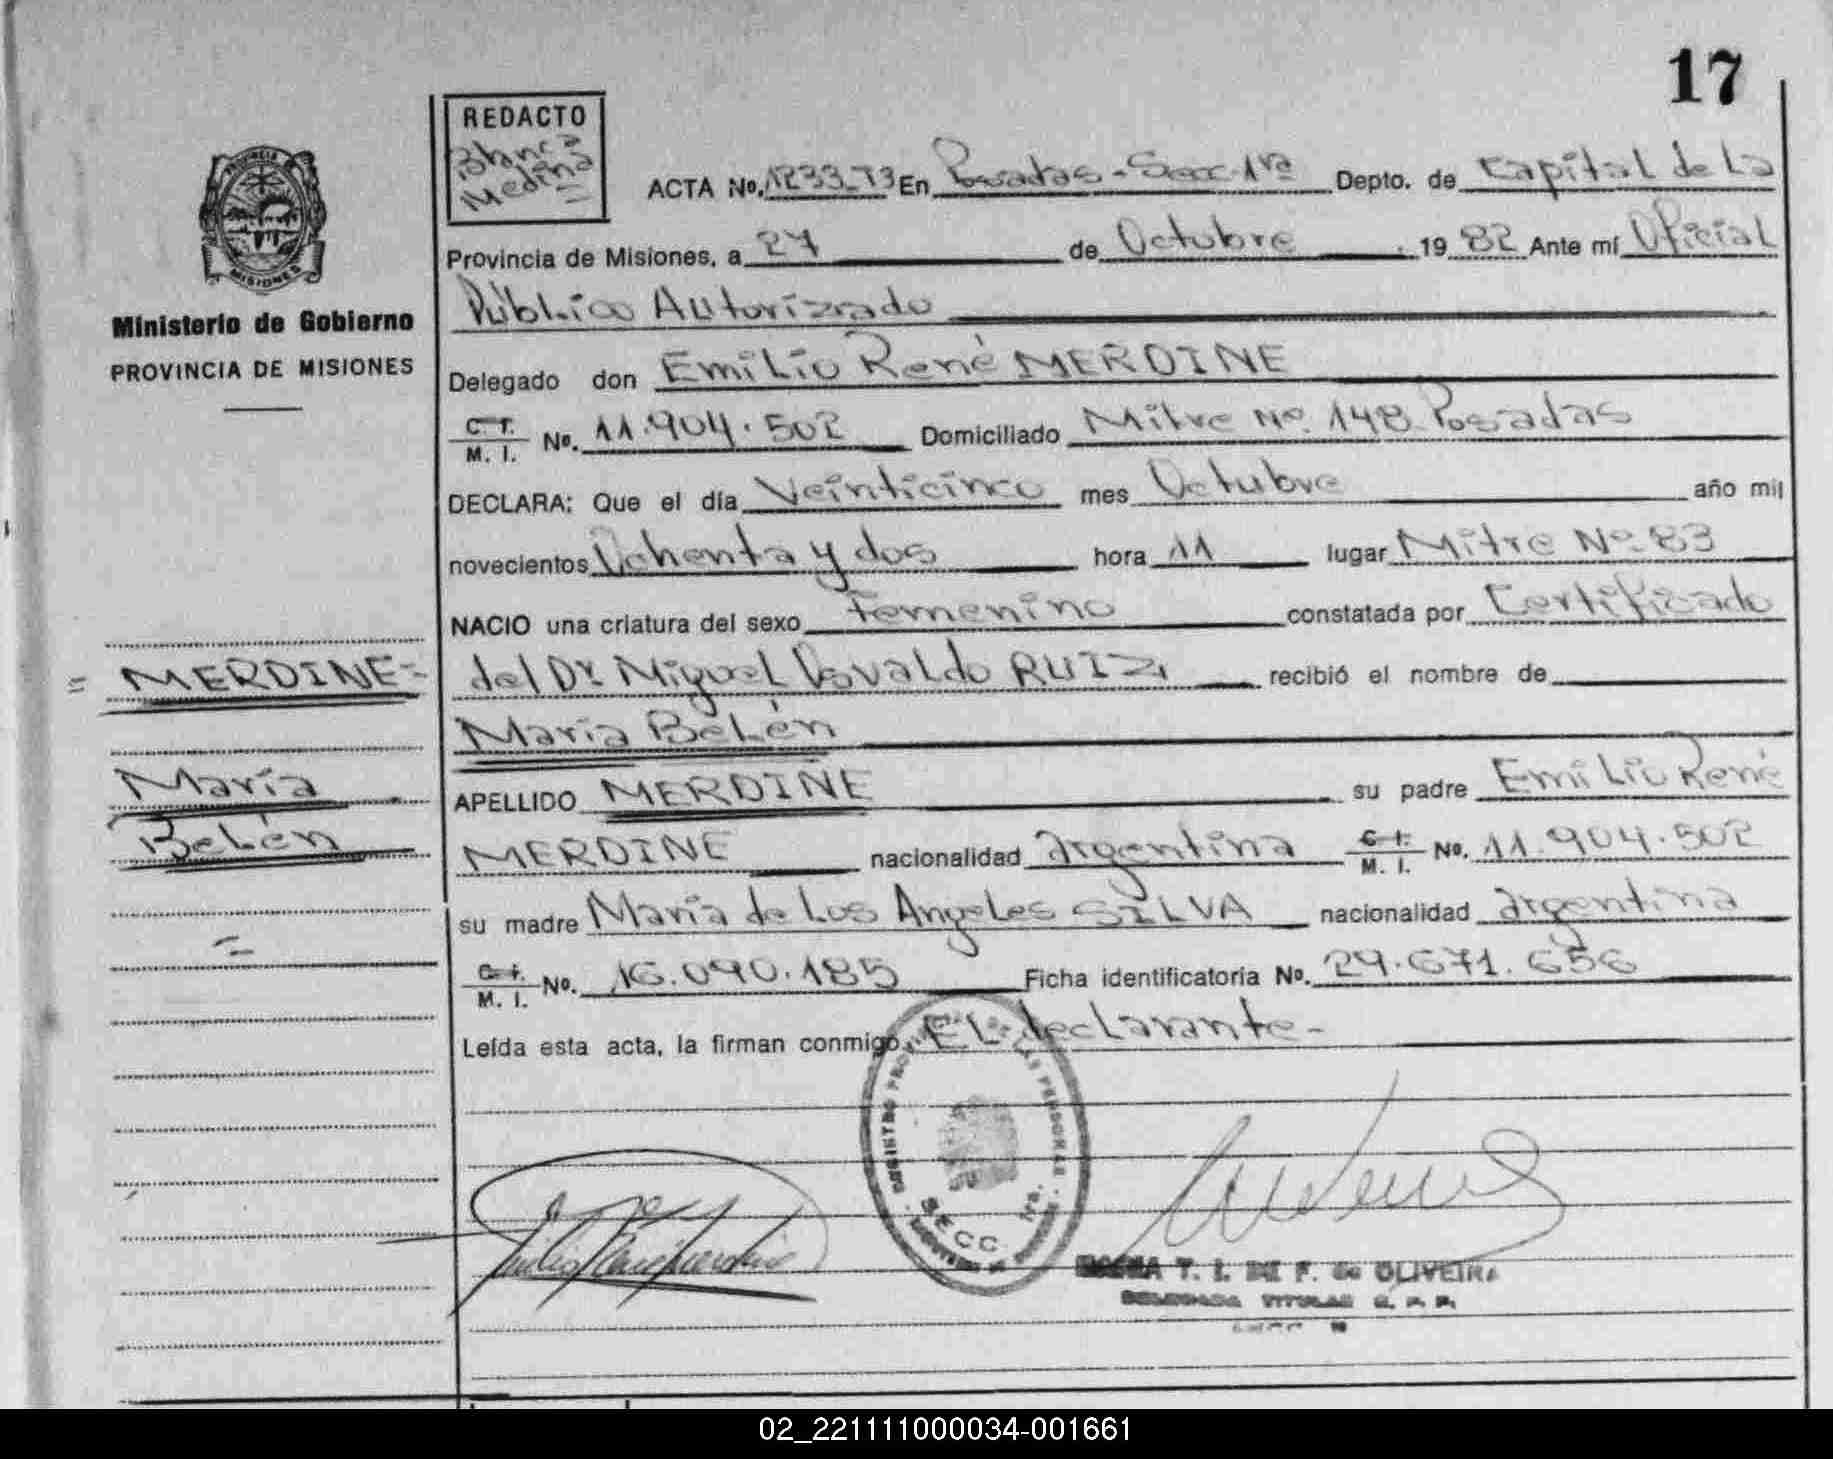 17
REDACTO
Blanca
Medina
=
ACTA No. 1233-T3 En Posadas - Secc 1ra Depto. de Capital de La
Provincia de Misiones, a 27 de Octubre 19 82 Ante mí Oficial
Público Autorizado
Delegado don Emilio René MERDINE
C. I. M. I. No. 11.904.502 Domiciliado Mitre No. 148 Posadas
DECLARA: Que el día Veinticinco mes Octubre año mil
novecientos Ochenta y dos hora 11 lugar Mitre No. 83
NACIO una criatura del sexo Femenino constatada por Certificado
del Dr Miguel Osvaldo RUIZ, recibió el nombre de
María Belén
APELLIDO MERDINE su padre Emilio René
MERDINE nacionalidad argentina C. I. M. I. No. 11.904.502
su madre María de Los Angeles SILVA nacionalidad argentina
C. I. M. I. No. 16.090.185 Ficha identificatoria No. 29.671.656
Leída esta acta, la firman conmigo, El declarante-
PROVINCIA DE
MISIONES
Ministerio de Gobierno
PROVINCIA DE MISIONES
= MERDINE =
María
Belén
=
REGISTRO PROVINCIAL DE LAS PERSONAS
SECC. 1ra.
T. I. DE F. de OLIVEIRA
DELEGADA TITULAR R. P. P.
02_221111000034-001661